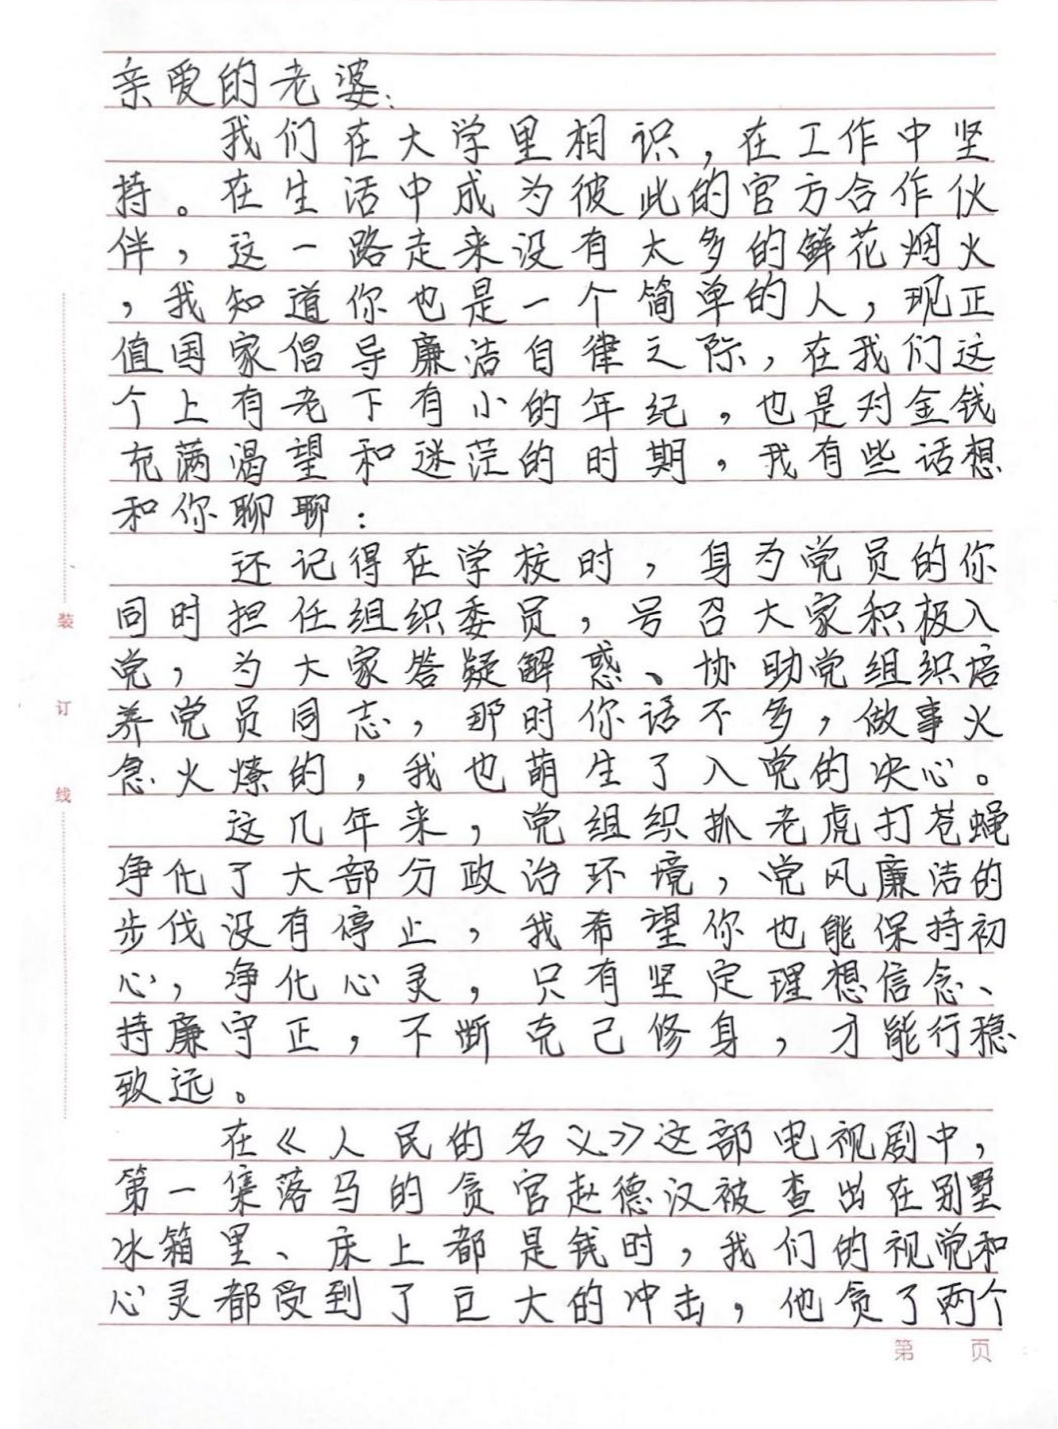 亲爱的老婆:
我们在大学里相识,在工作中坚
持。在生活中成为彼此的官方合作伙
伴,这一路走来没有太多的鲜花烟火
,我知道你也是一个简单的人,现正
值国家倡导廉洁自律之际,在我们这
个上有老下有小的年纪,也是对金钱
充满渴望和迷茫的时期,我有些话想
和你聊聊:
还记得在学校时,身为党员的你
同时担任组织委员,号召大家积极入
党,为大家答疑解惑、协助党组织培
养党员同志,那时你话不多,做事火
急火燎的,我也萌生了入党的决心。
这几年来,党组织抓老虎打苍蝇
净化了大部分政治环境,党风廉洁的
步伐没有停止,我希望你也能保持初
心,净化心灵,只有坚定理想信念、
持廉守正,不断克己修身,才能行稳
致远。
在《人民的名义》这部电视剧中,
第一集落马的贪官赵德汉被查出在别墅
冰箱里、床上都是钱时,我们的视觉和
心灵都受到了巨大的冲击,他贪了两个
装
订
线
第 页